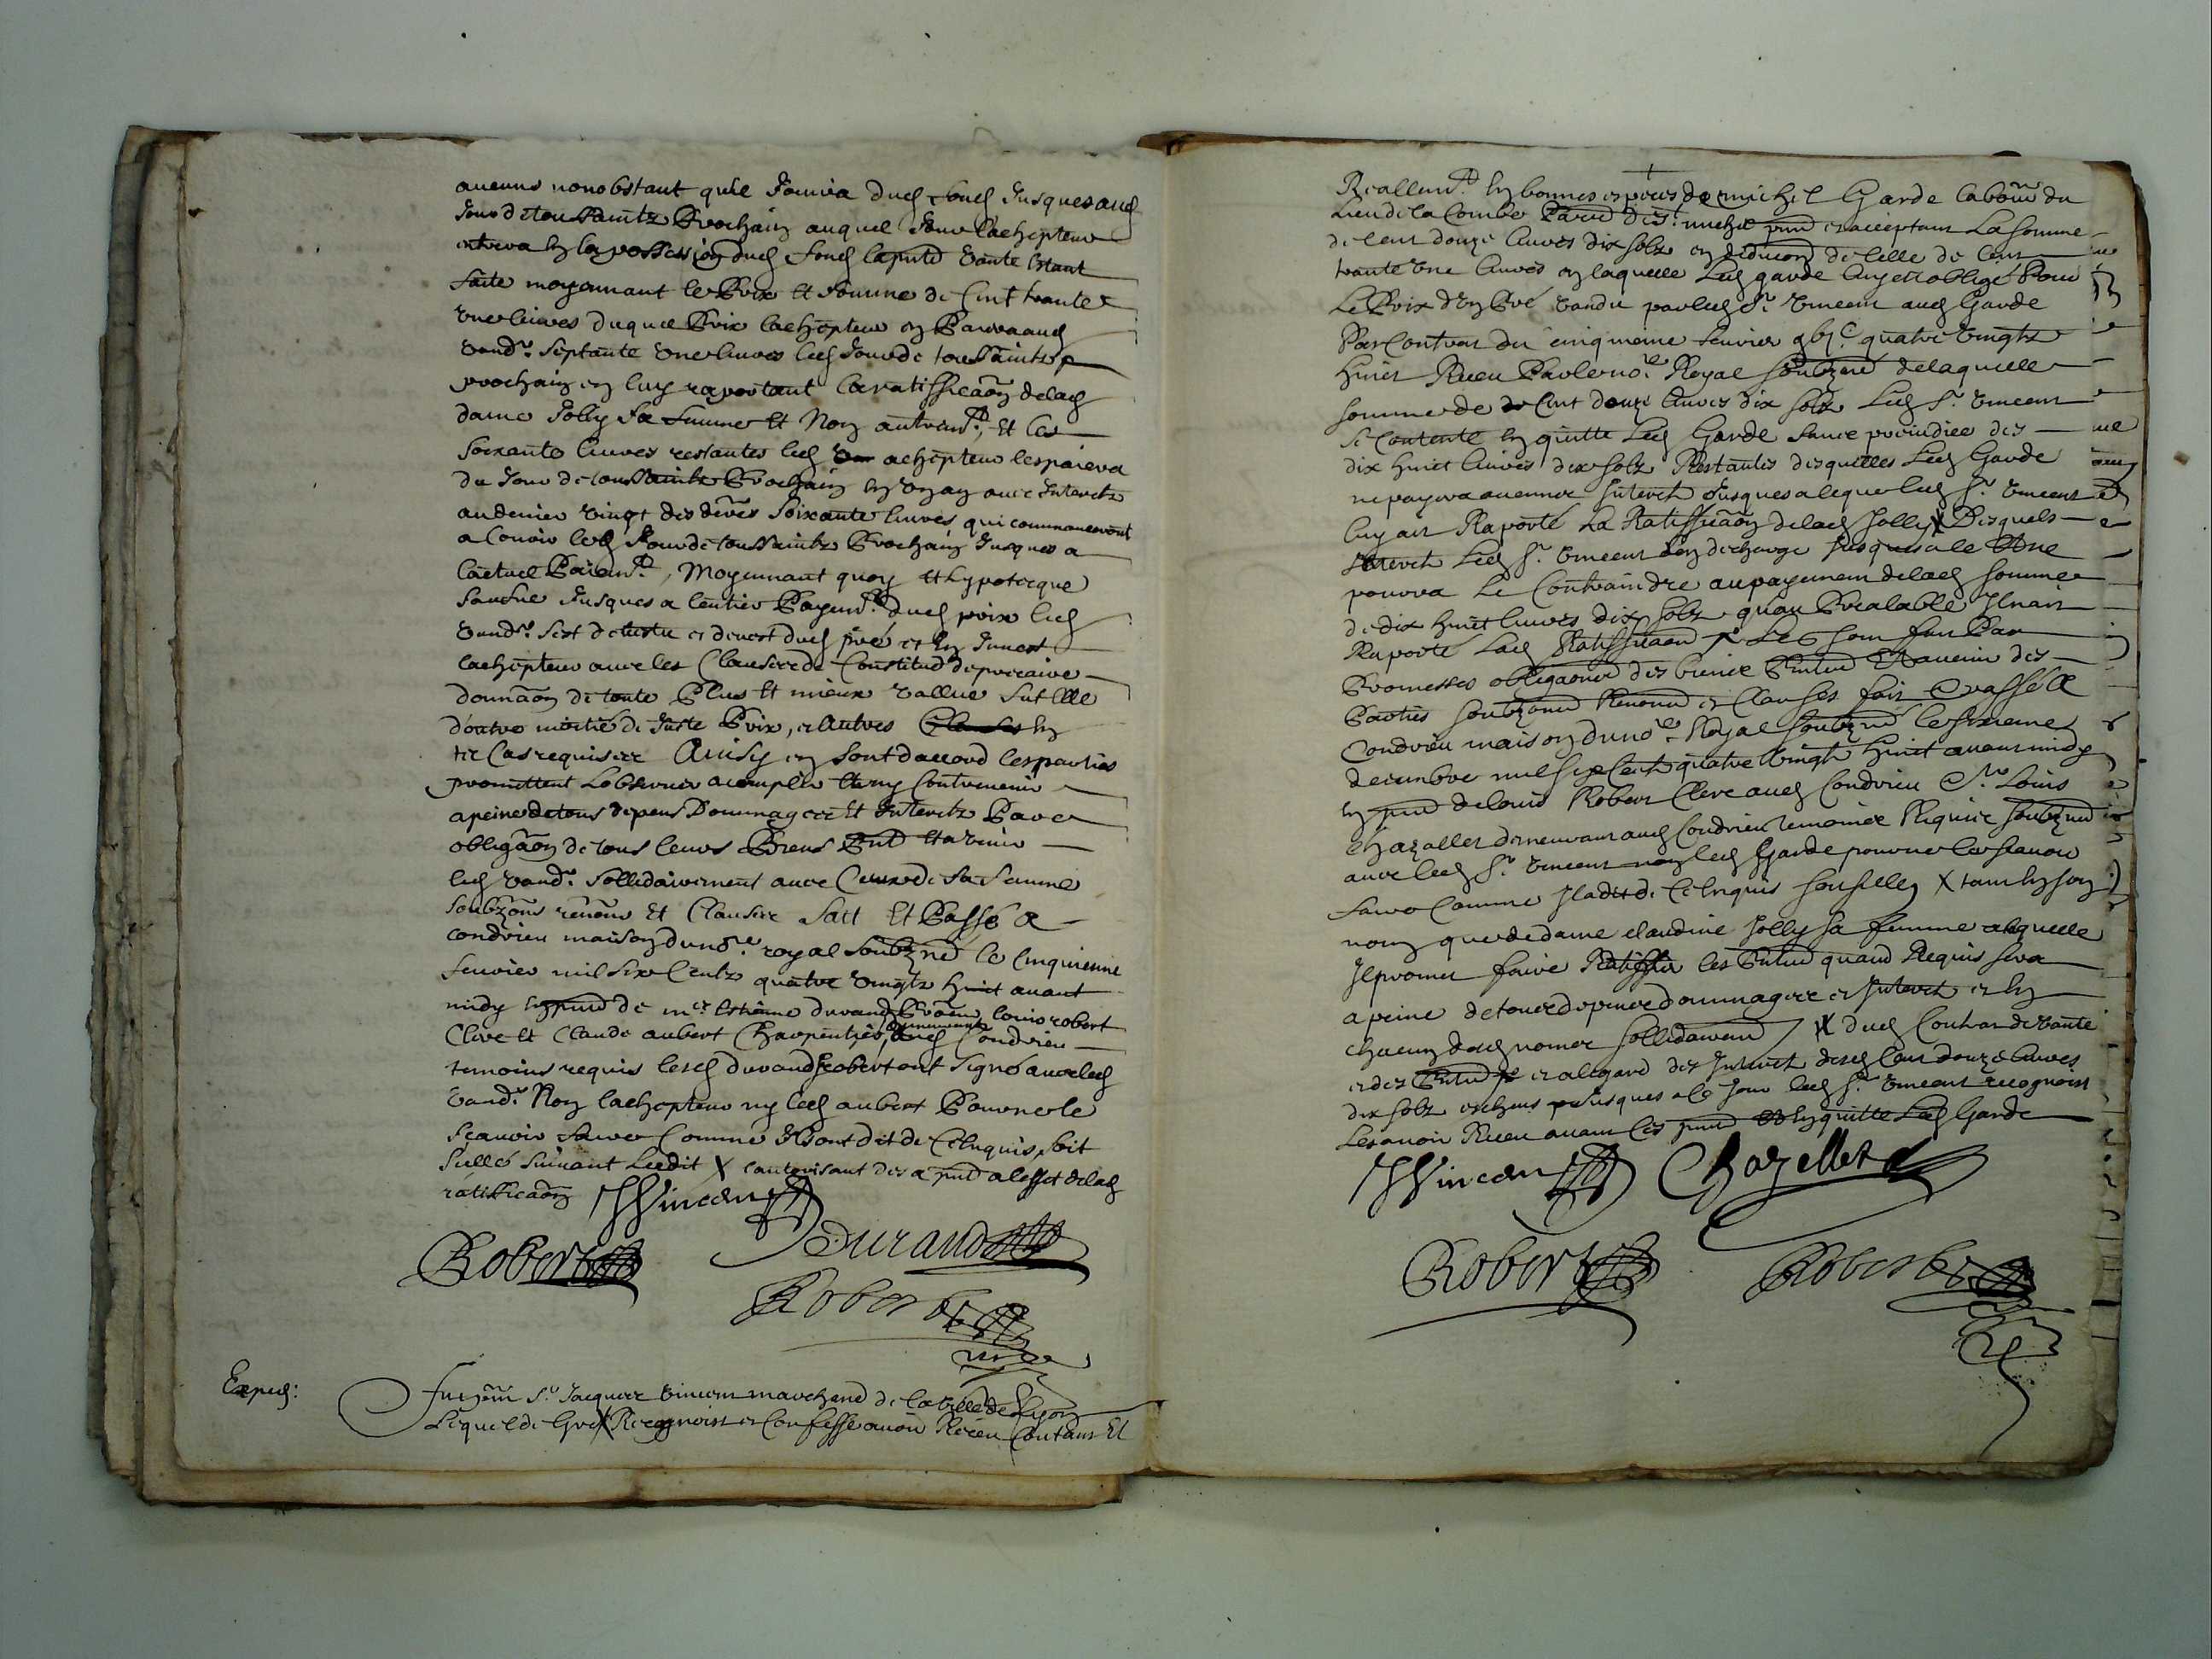 aucuns nonobstant quil Jouira dud fond Jusques aud
Jour de toussaintz Prochain auquel Jour lachepteur
entrera en la possession dud fond la pnte vante Estant
faite moyennant le Prix Et somme de Cent trante
une livres duquel Prix lachepteur en Paiera aud
vandr. septante une livres led Jour de toussaintz
prochain en luy raportant la ratifficaõn de lad
dame Jolly sa femme Et Non autremt, Et les
soixante livres restantes led achepteur les paiera
du Jour de toussaintz Prochain en un an avec Interetz
au denier vingt des dres soixante livres qui commanceront
a Courir led Jour de toussaintz Prochain Jusques a
lactuel Paiemt, Moyennant quoy Et hypotecque
saufue Jusques a lentier Payemt dud prix led
vandr. sest detestu et devest dud pré et En Invest
lachepteur avec les Clauses de Constitud de precaire
donnaõn de toute Plus Et mieux vallue fut Elle
doutre moitié de Juste Prix, et autres Clauses En
tel Cas requises Ainsy en sont daccord les parties
promettent Lobserver acomplir Et ny Contrevenir
a peine de tous depens Dommages Et Interetz Par
obligaõn de tous leurs Biens Pnt Et avenir
led vandr. sollidairement avec Ceux de sa femme
soubzõns renõns Et Clauses fait Et Passé a
condrieu maison du nore royal soubzné le Cinquieme
fevrier mil six Centz quatre vingtz huit avant
midy En pnce de mre Estienne durand louis robert
Clerc Et Claude aubert Charpentier dud Condrieu
temoins requis lesd durand robert ont signé avec led
vandr. Non lachepteur ny led aubert Pour ne le
scavoir faire Comme Ils ont dit de Ce Enquis, soit
sullé suivant Ledit X lautorisant des a pnt a leffet de lad
ratifficaõn JVincent
Robert Durand
Robert
Exped:
Fut pnt Sr. Jacques Vincent marchand de la ville de Lyon
Lequel de gré X Recognoist et Confesse avoir Receu Contant Et
Reallemt En bonnes especes de michel Garde labour du
Lieu de la Combe michel pnt et acceptant La somme
de Cent douze livres dix solz en deduction de Celle de Cent
trante une livres en laquelle Led garde luy est obligé Pour
Le Prix dEn Pré vandu par led Sr. Vincent aud Garde
Par Contrat du cinqmeme fevrier gbic quatre vingtz
huict Receu Par le nore Royal soubzné de laquelle
somme de Cent douze livres dix solz Led Sr. Vincent
se Contente En quitte Led Garde sans preiudice des
dix huict livres dix solz Restantes desquelles Led Garde
ne payera aucuns Interetz Jusques a ceque led Sr. Vincent
luy ait Raporté La Ratifficaõn de lad Jolly X Desquels
Interetz Led Sr. Vincent Len decharge Jusques a ce
pourra Le Contraindre au payement de lad somme
de dix huict livres dix solz quau Prealable Il nait
Raporté Lad Ratifficaõn
Promesses obligaõns des biens Pntz Et avenir des
Parties soubzõns Renõns et Clauses fait Et passé A
Condrieu maison du nore Royal soubzné le
decembre mil six Cent quatre vingtz huict avant midy
En pnce de louis Robert Clerc aud Condrieu Et Sr. Louis
Chazellet demeurant aud Condrieu temoins Requis soubznés
avec led Sr. Vincent non led Garde pour ne le scavoir
faire Comme Il a dit de Ce Enquis X tant En son
nom que de dame claudine Jolly sa femme a laquelle
Il promet faire Ratiffier les Pntes quand Requis sera
a peine de tous depens dommages et Interetz et En
chacun desd noms sollidairemt X dud Contrat de vante
et des Pntes et a legard des Interetz desd Cent douze livres
dix solz escheus Jusques a Ce Jour led Sr. Vincent recognoist
Les avoir Receu avant Ces pntes En quitte Led Garde
JVincent Chazellet
Robert Robert